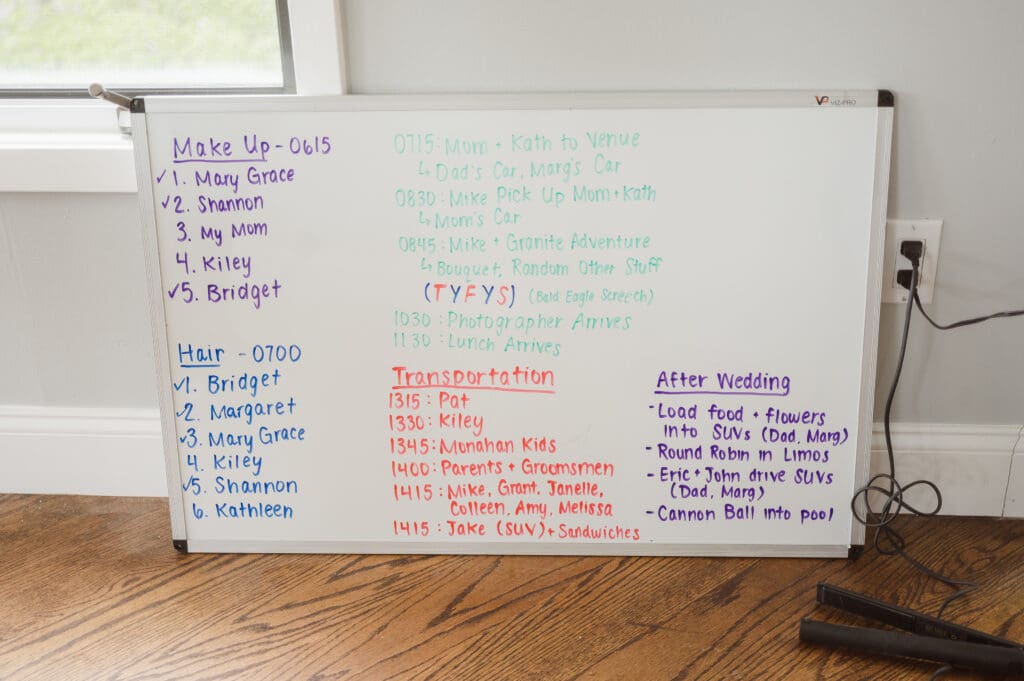 VIZ-PRO
Make Up - 0615
✓ 1. Mary Grace
✓ 2. Shannon
3. My Mom
4. Kiley
✓ 5. Bridget
Hair - 0700
✓ 1. Bridget
✓ 2. Margaret
✓ 3. Mary Grace
4. Kiley
✓ 5. Shannon
6. Kathleen
0715: Mom + Kath to Venue
↳ Dad's Car, Marg's Car
0830: Mike Pick Up Mom + Kath
↳ Mom's Car
0845: Mike + Granite Adventure
↳ Bouquet, Random Other Stuff
(TYFYS) (Bald Eagle Screech)
1030: Photographer Arrives
1130: Lunch Arrives
Transportation
1315: Pat
1330: Kiley
1345: Monahan Kids
1400: Parents + Groomsmen
1415: Mike, Grant, Janelle,
Colleen, Amy, Melissa
1415: Jake (SUV) + Sandwiches
After Wedding
- Load food + flowers
into SUVs (Dad, Marg)
- Round Robin in Limos
- Eric + John drive SUVs
(Dad, Marg)
- Cannon Ball into pool